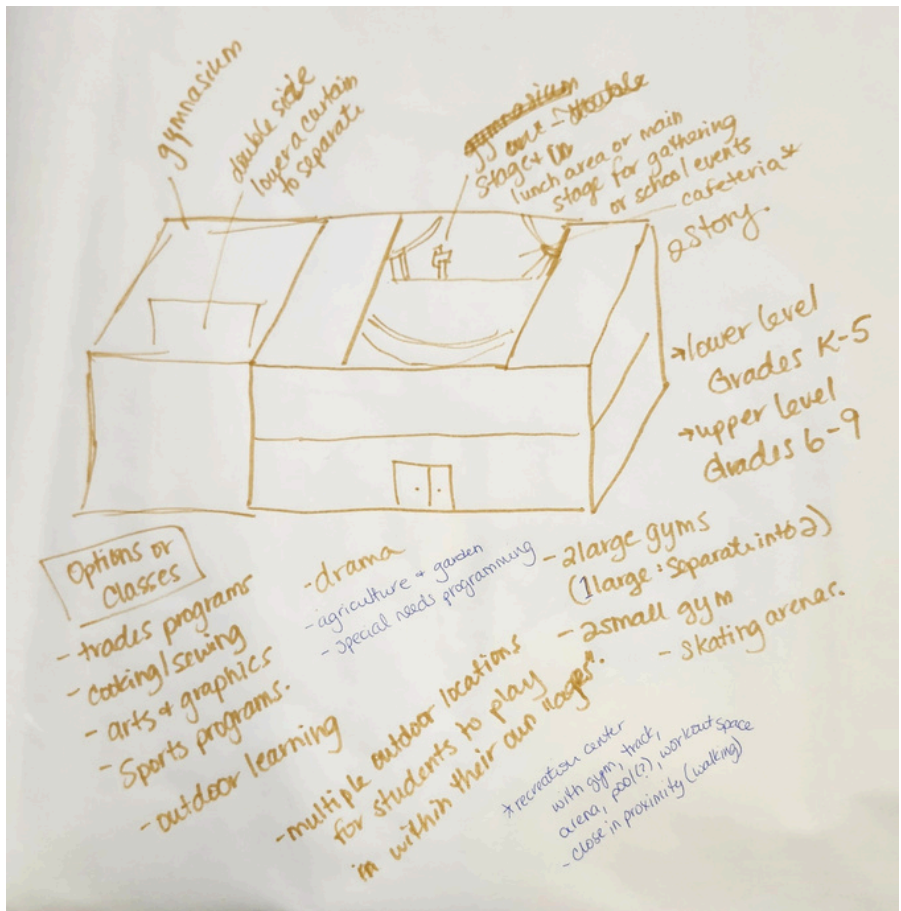 gymnasium
double side
lower a curtain
to separate
gymnasium
stage
lunch area or main
stage for gathering
or school events
cafeteria*
2story.
→lower level
Grades K-5
→upper level
Grades 6-9
Options or
Classes
- trades programs
- cooking/sewing
- arts + graphics
- Sports programs.
- outdoor learning
- drama
- agriculture + garden
- special needs programming
- multiple outdoor locations
for students to play
in within their own "ages".
- 2large gyms
(1large : Separate into 2)
- 2small gym
- skating arenas.
*recreation center
with gym, track,
arena, pool(?), workout space
- close in proximity (walking)